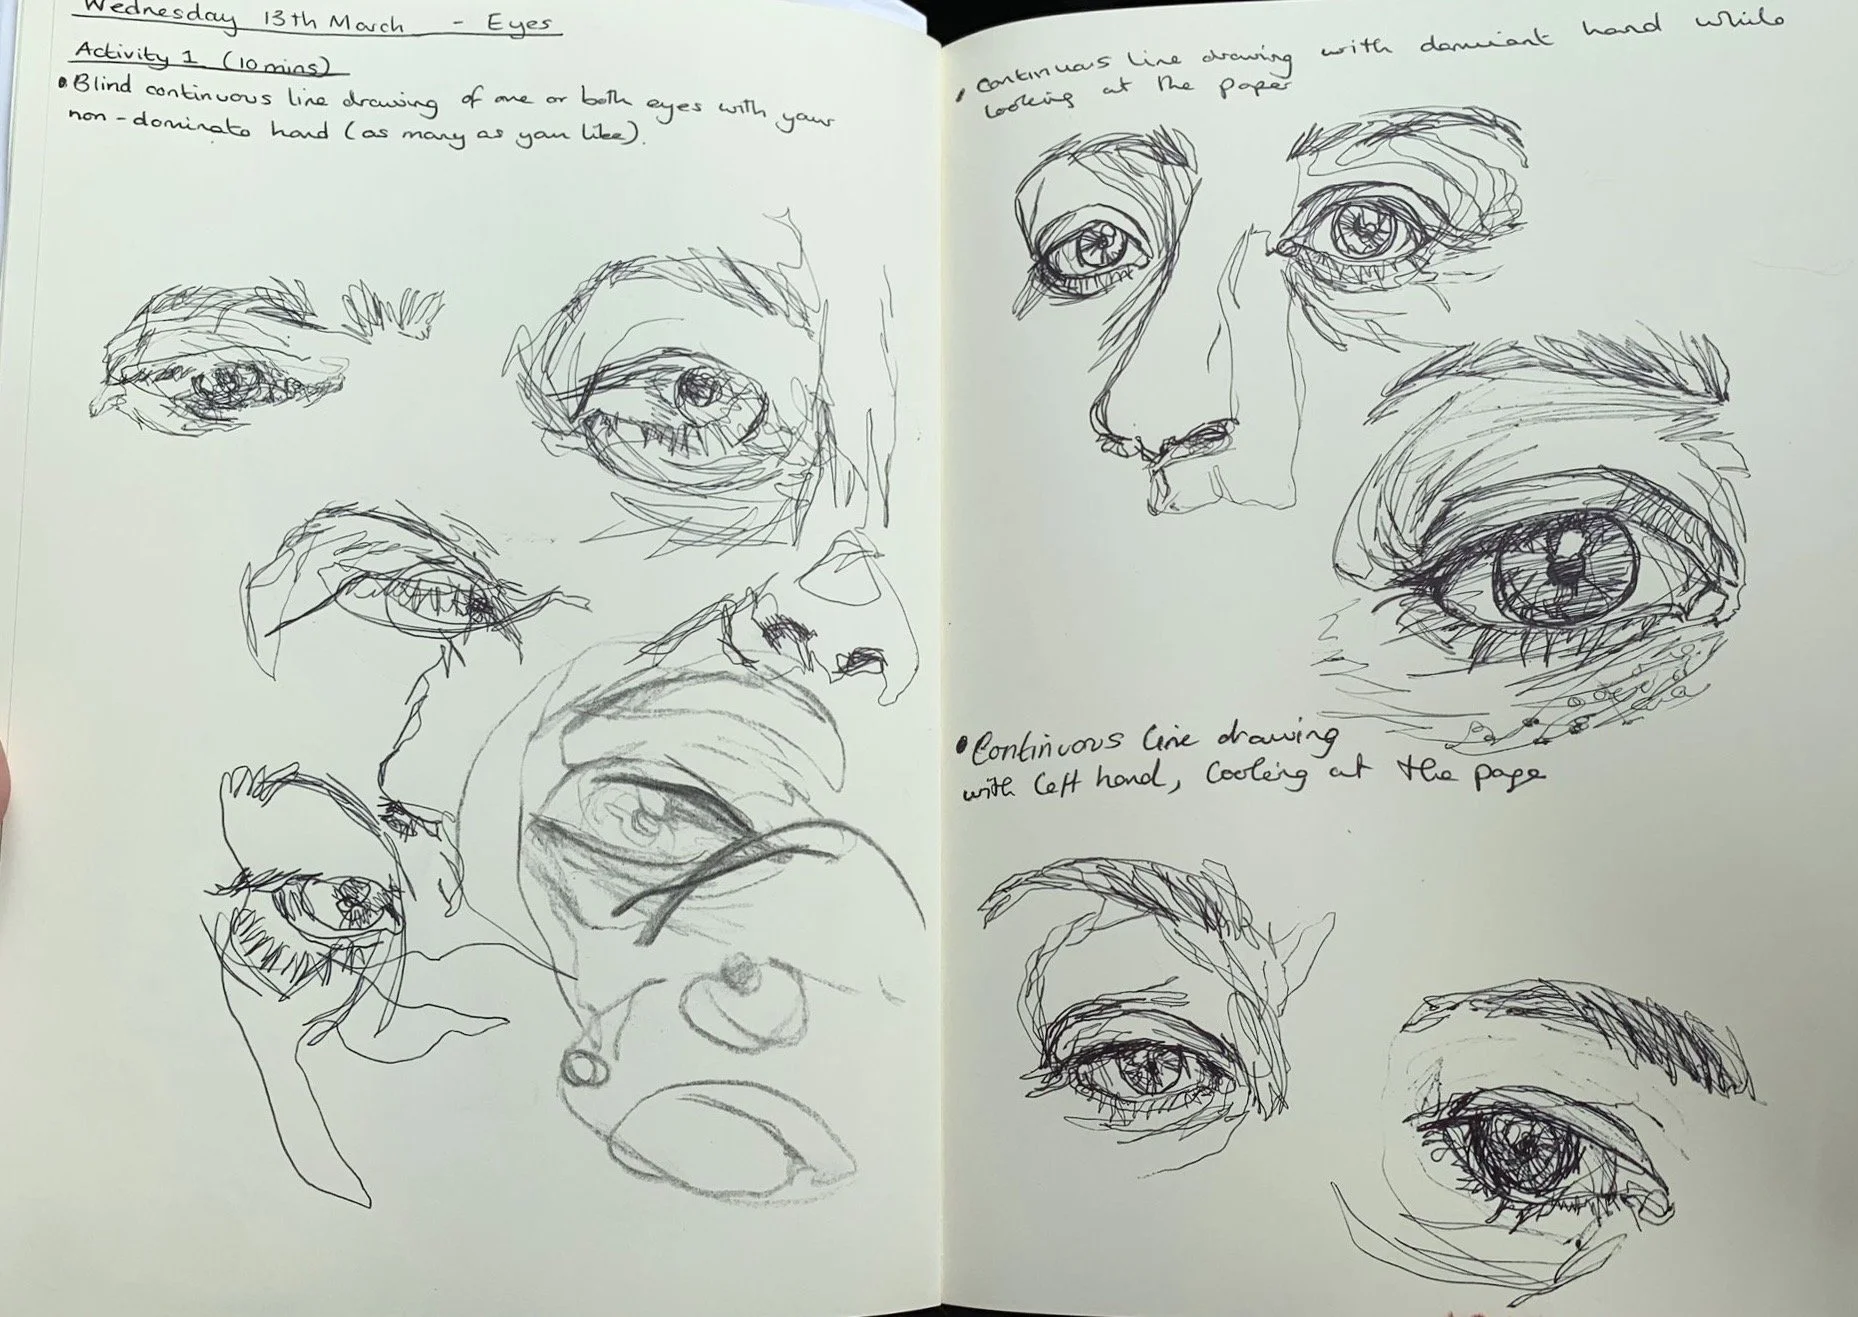 Wednesday 13th March - Eyes
Activity 1 (10 mins)
• Blind continuous line drawing of one or both eyes with your
non-dominate hand (as many as you like).
• Continuous line drawing with domiant hand while
looking at the paper
• Continuous line drawing
with left hand, looking at the page